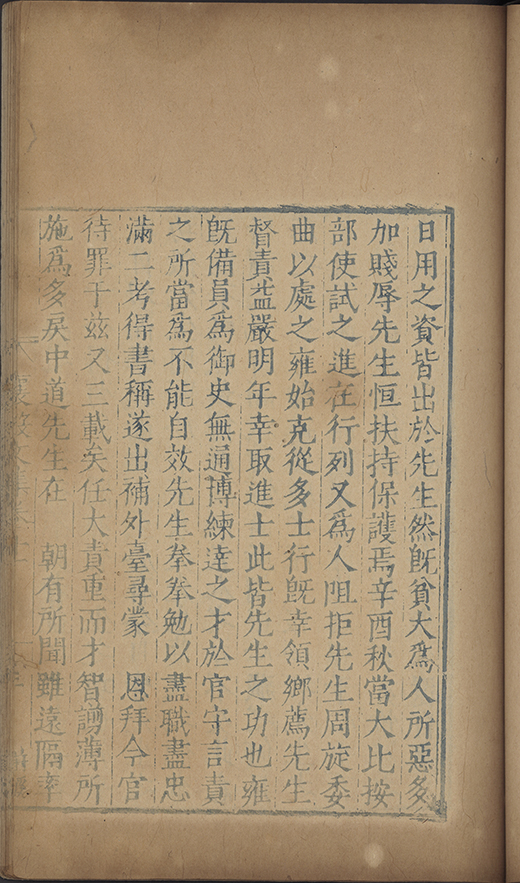 日用之資皆出於先生然旣貧大爲人所惡多
加賤辱先生恒扶持保護焉辛酉秋當大比按
部使試之進在行列又爲人阻拒先生周旋委
曲以處之雍始克從多士行旣幸領鄉薦先生
督責益嚴明年幸取進士此皆先生之功也雍
旣備員爲御史無通博練達之才於官守言責
之所當爲不能自效先生拳拳勉以盡職盡忠
滿二考得書稱遂出補外臺尋蒙 恩拜今官
待罪于兹又三載矣任大責重而才智謭薄所
施爲多戾中道先生在 朝有所聞雖遠隔率